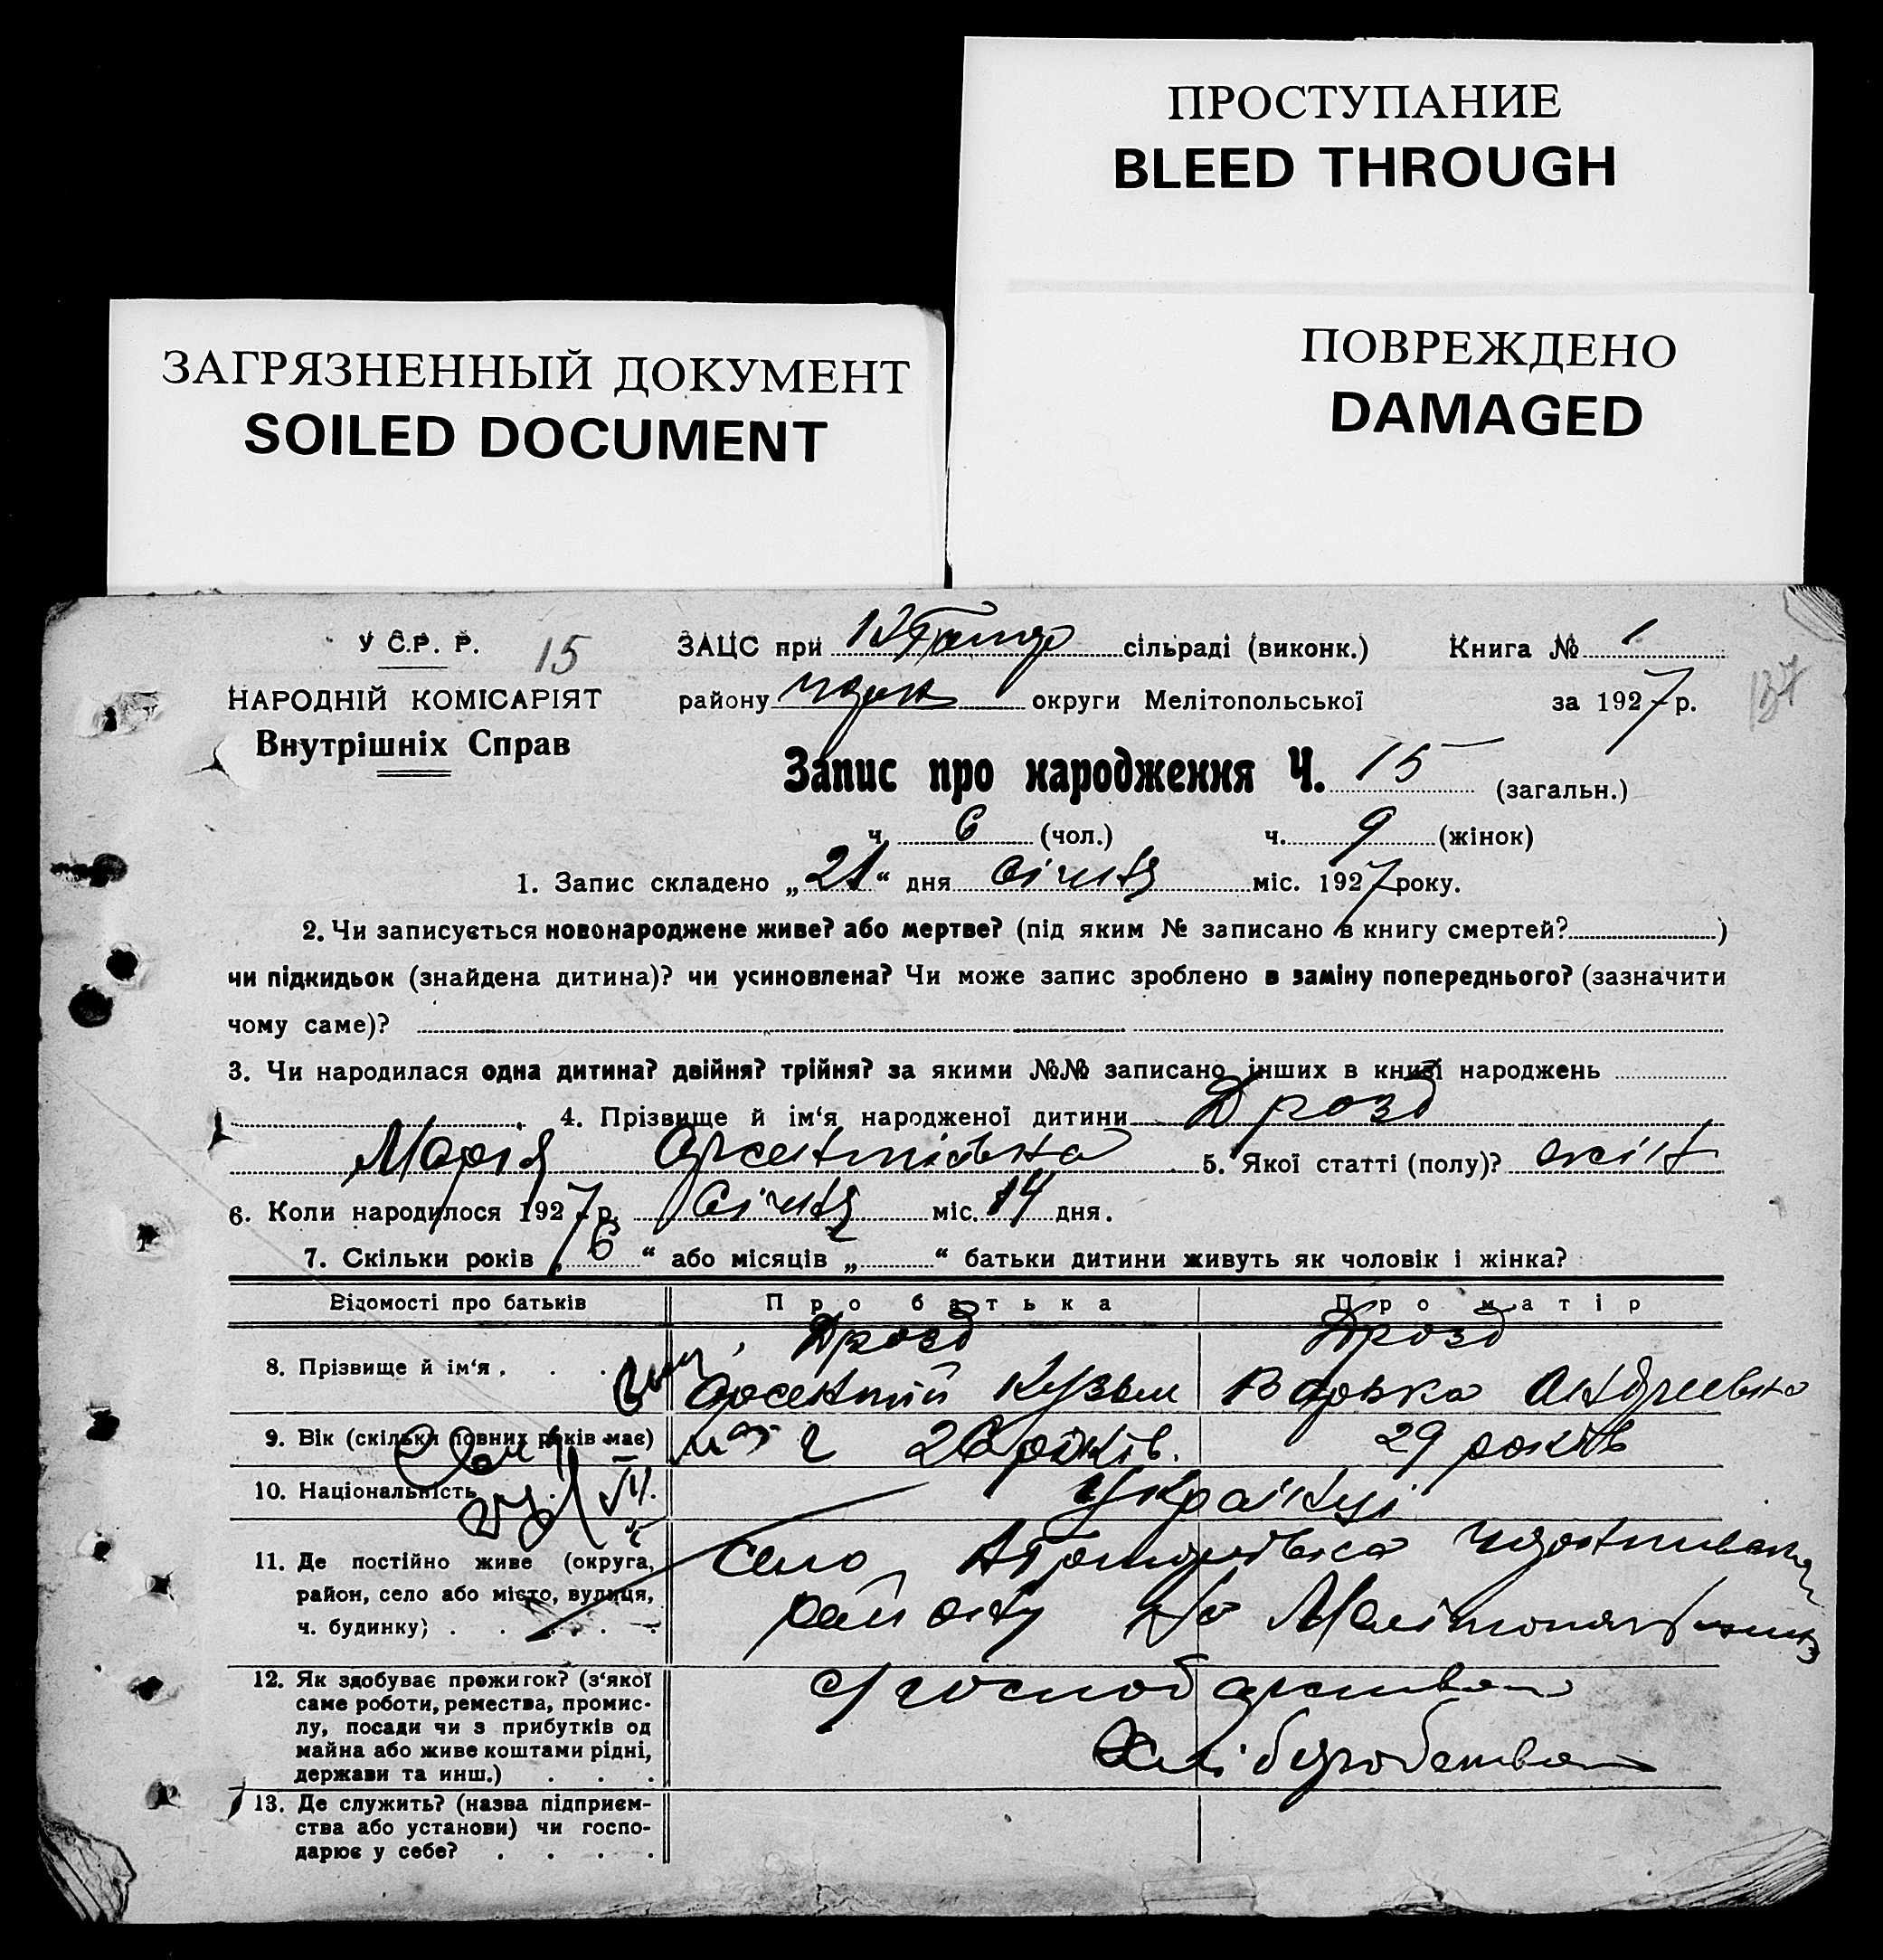 ПРОСТУПАНИЕ
BLEED THROUGH
ЗАГРЯЗНЕННЫЙ ДОКУМЕНТ
SOILED DOCUMENT
ПОВРЕЖДЕНО
DAMAGED
У С.Р. Р. 15
НАРОДНІЙ КОМІСАРІЯТ
Внутрішніх Справ
ЗАЦС при сільраді (виконк.) Книга № 1
району округи Мелітопольської за 1927 р. 137
Запис про народження Ч. 15 (загальн.)
ч. 6 (чол.) ч. 9 (жінок)
1. Запис складено „21“ дня січня міс. 1927 року.
2. Чи записується новонароджене живе? або мертве? (під яким № записано в книгу смертей? )
чи підкидьок (знайдена дитина)? чи усиновлена? Чи може запис зроблено в заміну попереднього? (зазначити
чому саме)?
3. Чи народилася одна дитина? двійня? трійня? за якими №№ записано інших в книзі народжень
4. Прізвище й ім‘я народженої дитини Дрозд
Марія Арсентіївна 5. Якої статті (полу)? жін
6. Коли народилося 1927 р. Січня міс. 14 дня.
7. Скільки років „6“ або місяців „ “ батьки дитини живуть як чоловік і жінка?
Відомості про батьків Про батька Про матір
8. Прізвище й ім‘я . . . Дрозд Дрозд
Арсентий Кузьм Варька Андреевна
9. Вік (скільки повних років має) 26 років. 29 років
10. Національність . . . Українці
11. Де постійно живе (округа,
район, село або місто, вулиця,
ч. будинку; . . . . . .
село
району на
12. Як здобуває прожиток? (з‘якої
саме роботи, ремества, промис-
лу, посади чи з прибутків од
майна або живе коштами рідні,
держави та инш.) . . .
с/господарство
Хліборобство
13. Де служить? (назва підприєм-
ства або установи) чи госпо-
дарює у себе? . . . .